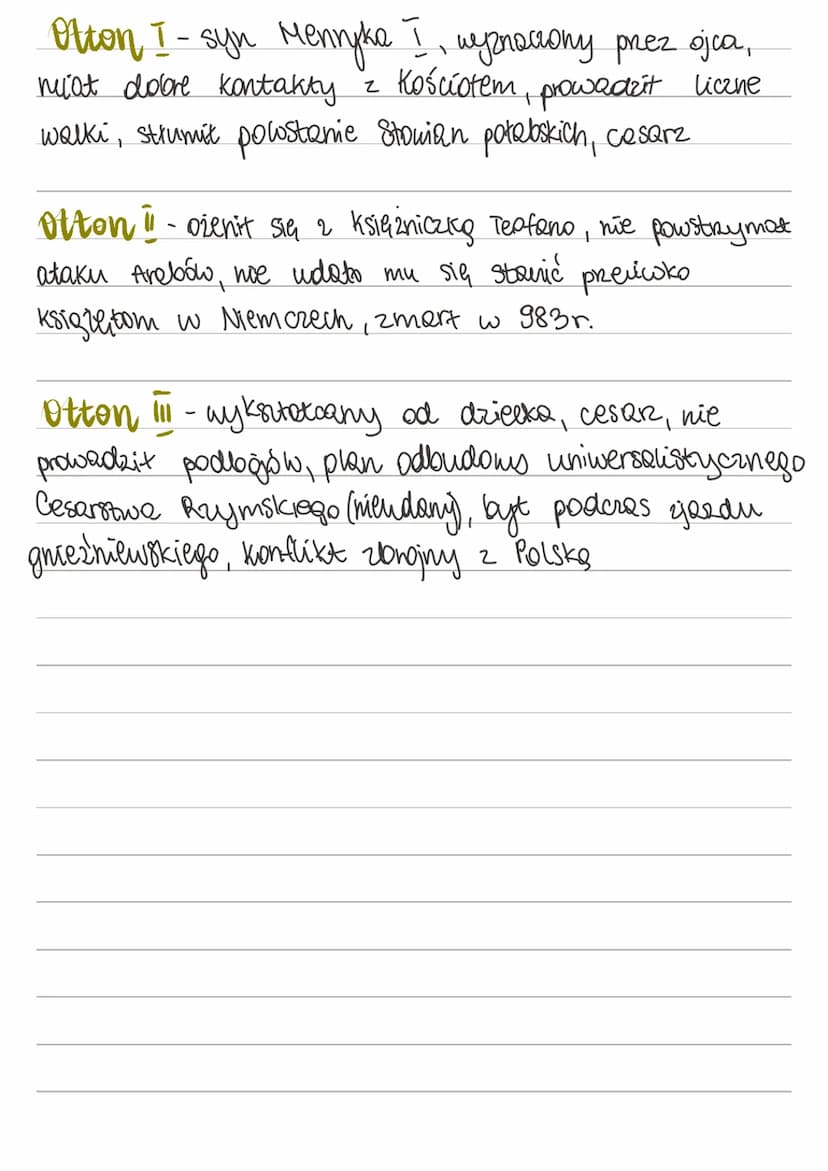 Otton I - syn Henryka I, wyznaczony przez ojca,
miał dobre kontakty z Kościołem, prowadził liczne
walki, stłumił powstanie Słowian połabskich, cesarz
Otton II - ożenił się z księżniczką Teofano, nie powstrzymał
ataku Arabów, nie udało mu się stawić przeciwko
książętom w Niemczech, zmarł w 983r.
Otton III - wykształcany od dziecka, cesarz, nie
prowadził podbojów, plan odbudowy uniwersalistycznego
Cesarstwa Rzymskiego (nieudany), był podczas zjazdu
gnieźnieńskiego, konflikt zbrojny z Polską